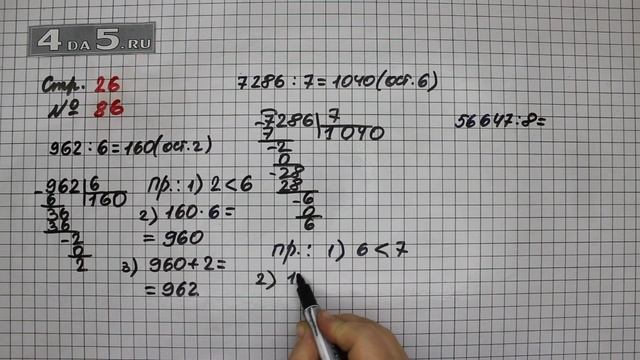 4DA5.RU
Стр. 26
№ 86
962 : 6 = 160 (ост. 2)
-962|6
6 160
36
36
-2
0
2
Пр.: 1) 2 < 6
2) 160 · 6 =
= 960
3) 960 + 2 =
= 962
7286 : 7 = 1040 (ост. 6)
-7286|7
7 1040
-2
0
-28
28
-6
0
6
Пр.: 1) 6 < 7
2) 1
56647 : 8 =